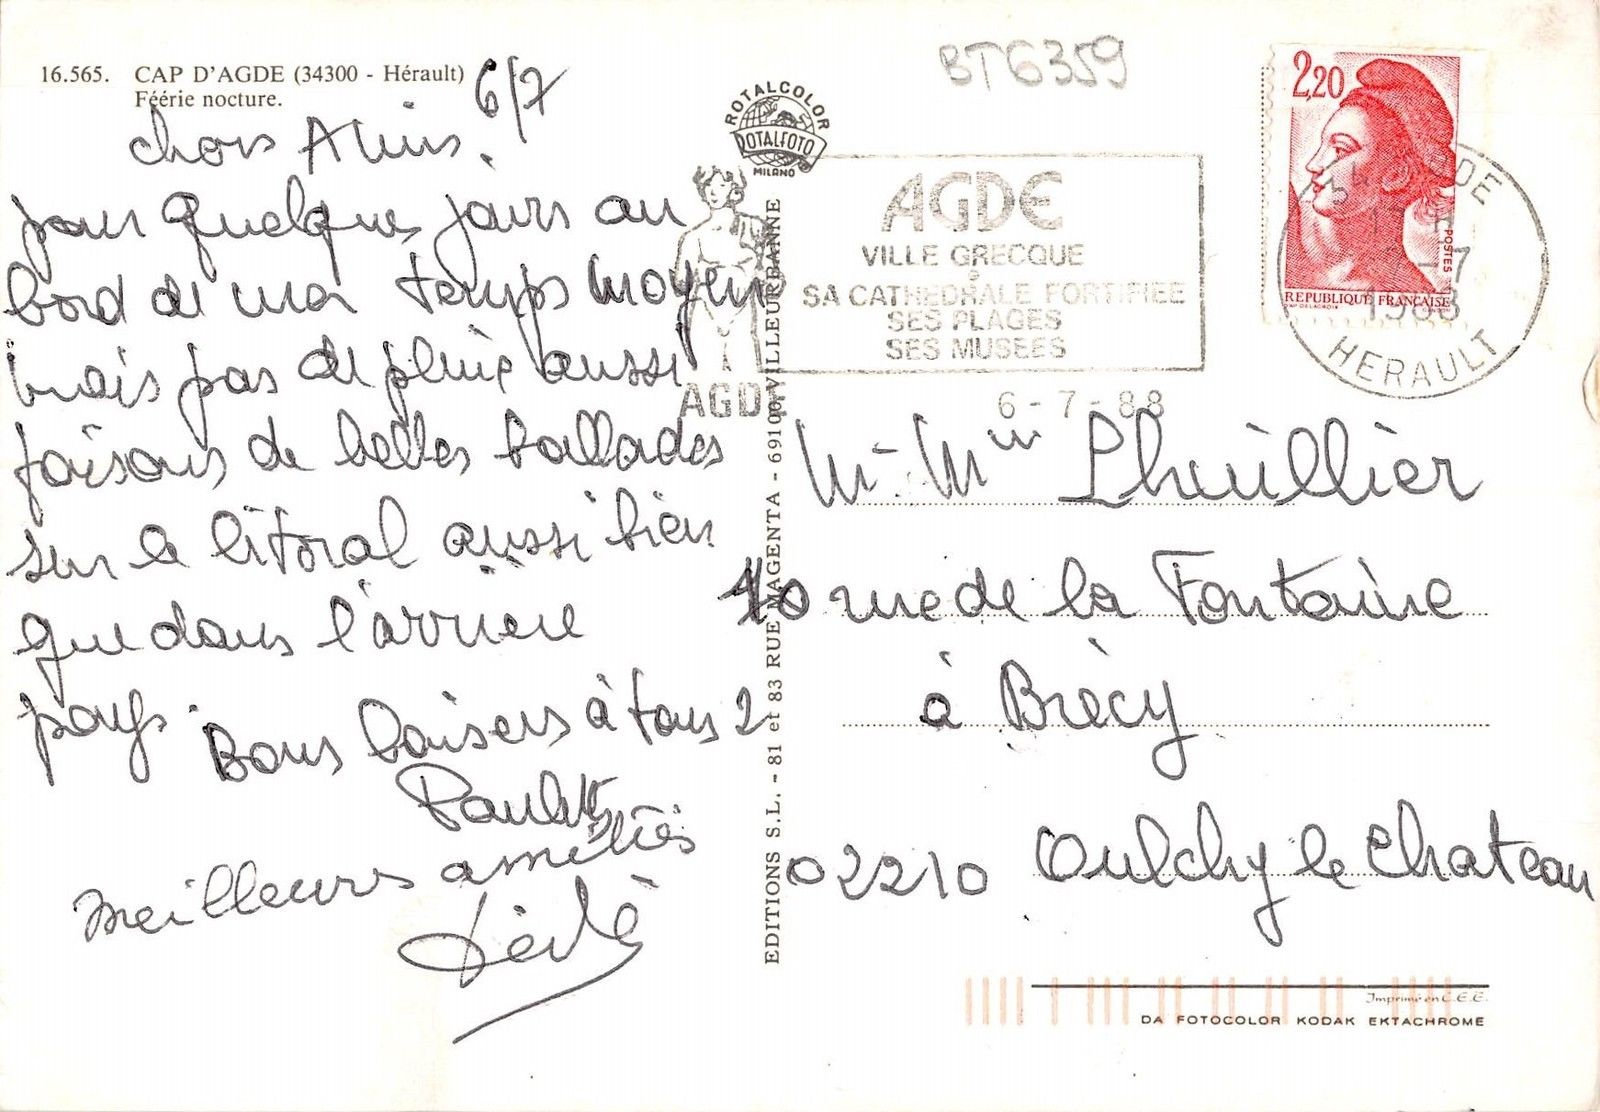 16.565. CAP D'AGDE (34300 - Hérault)
Féérie nocture.
6/7
chers Amis.
pour quelques jours au
bord de mer temps moyen
mais pas de pluie aussi
faisons de belles ballades
sur le litoral aussi bien
que dans l'arrière
pays.
Bons baisers à tous 2
Paulette
meilleures amitiés
ROTALCOLOR
ROTALFOTO
MILANO
EDITIONS S.L. - 81 et 83 RUE MAGENTA - 69100 VILLEURBANNE
BT6359
AGDE
VILLE GRECQUE
SA CATHEDRALE FORTIFIEE
SES PLAGES
SES MUSEES
AGDE
6-7-88
2,20
POSTES
REPUBLIQUE FRANÇAISE
1988
HERAULT
Mr Mme Lhuillier
10 rue de la Fontaine
à Brécy
02210 Oulchy le Chateau
Imprimé en C.E.E.
DA FOTOCOLOR KODAK EKTACHROME